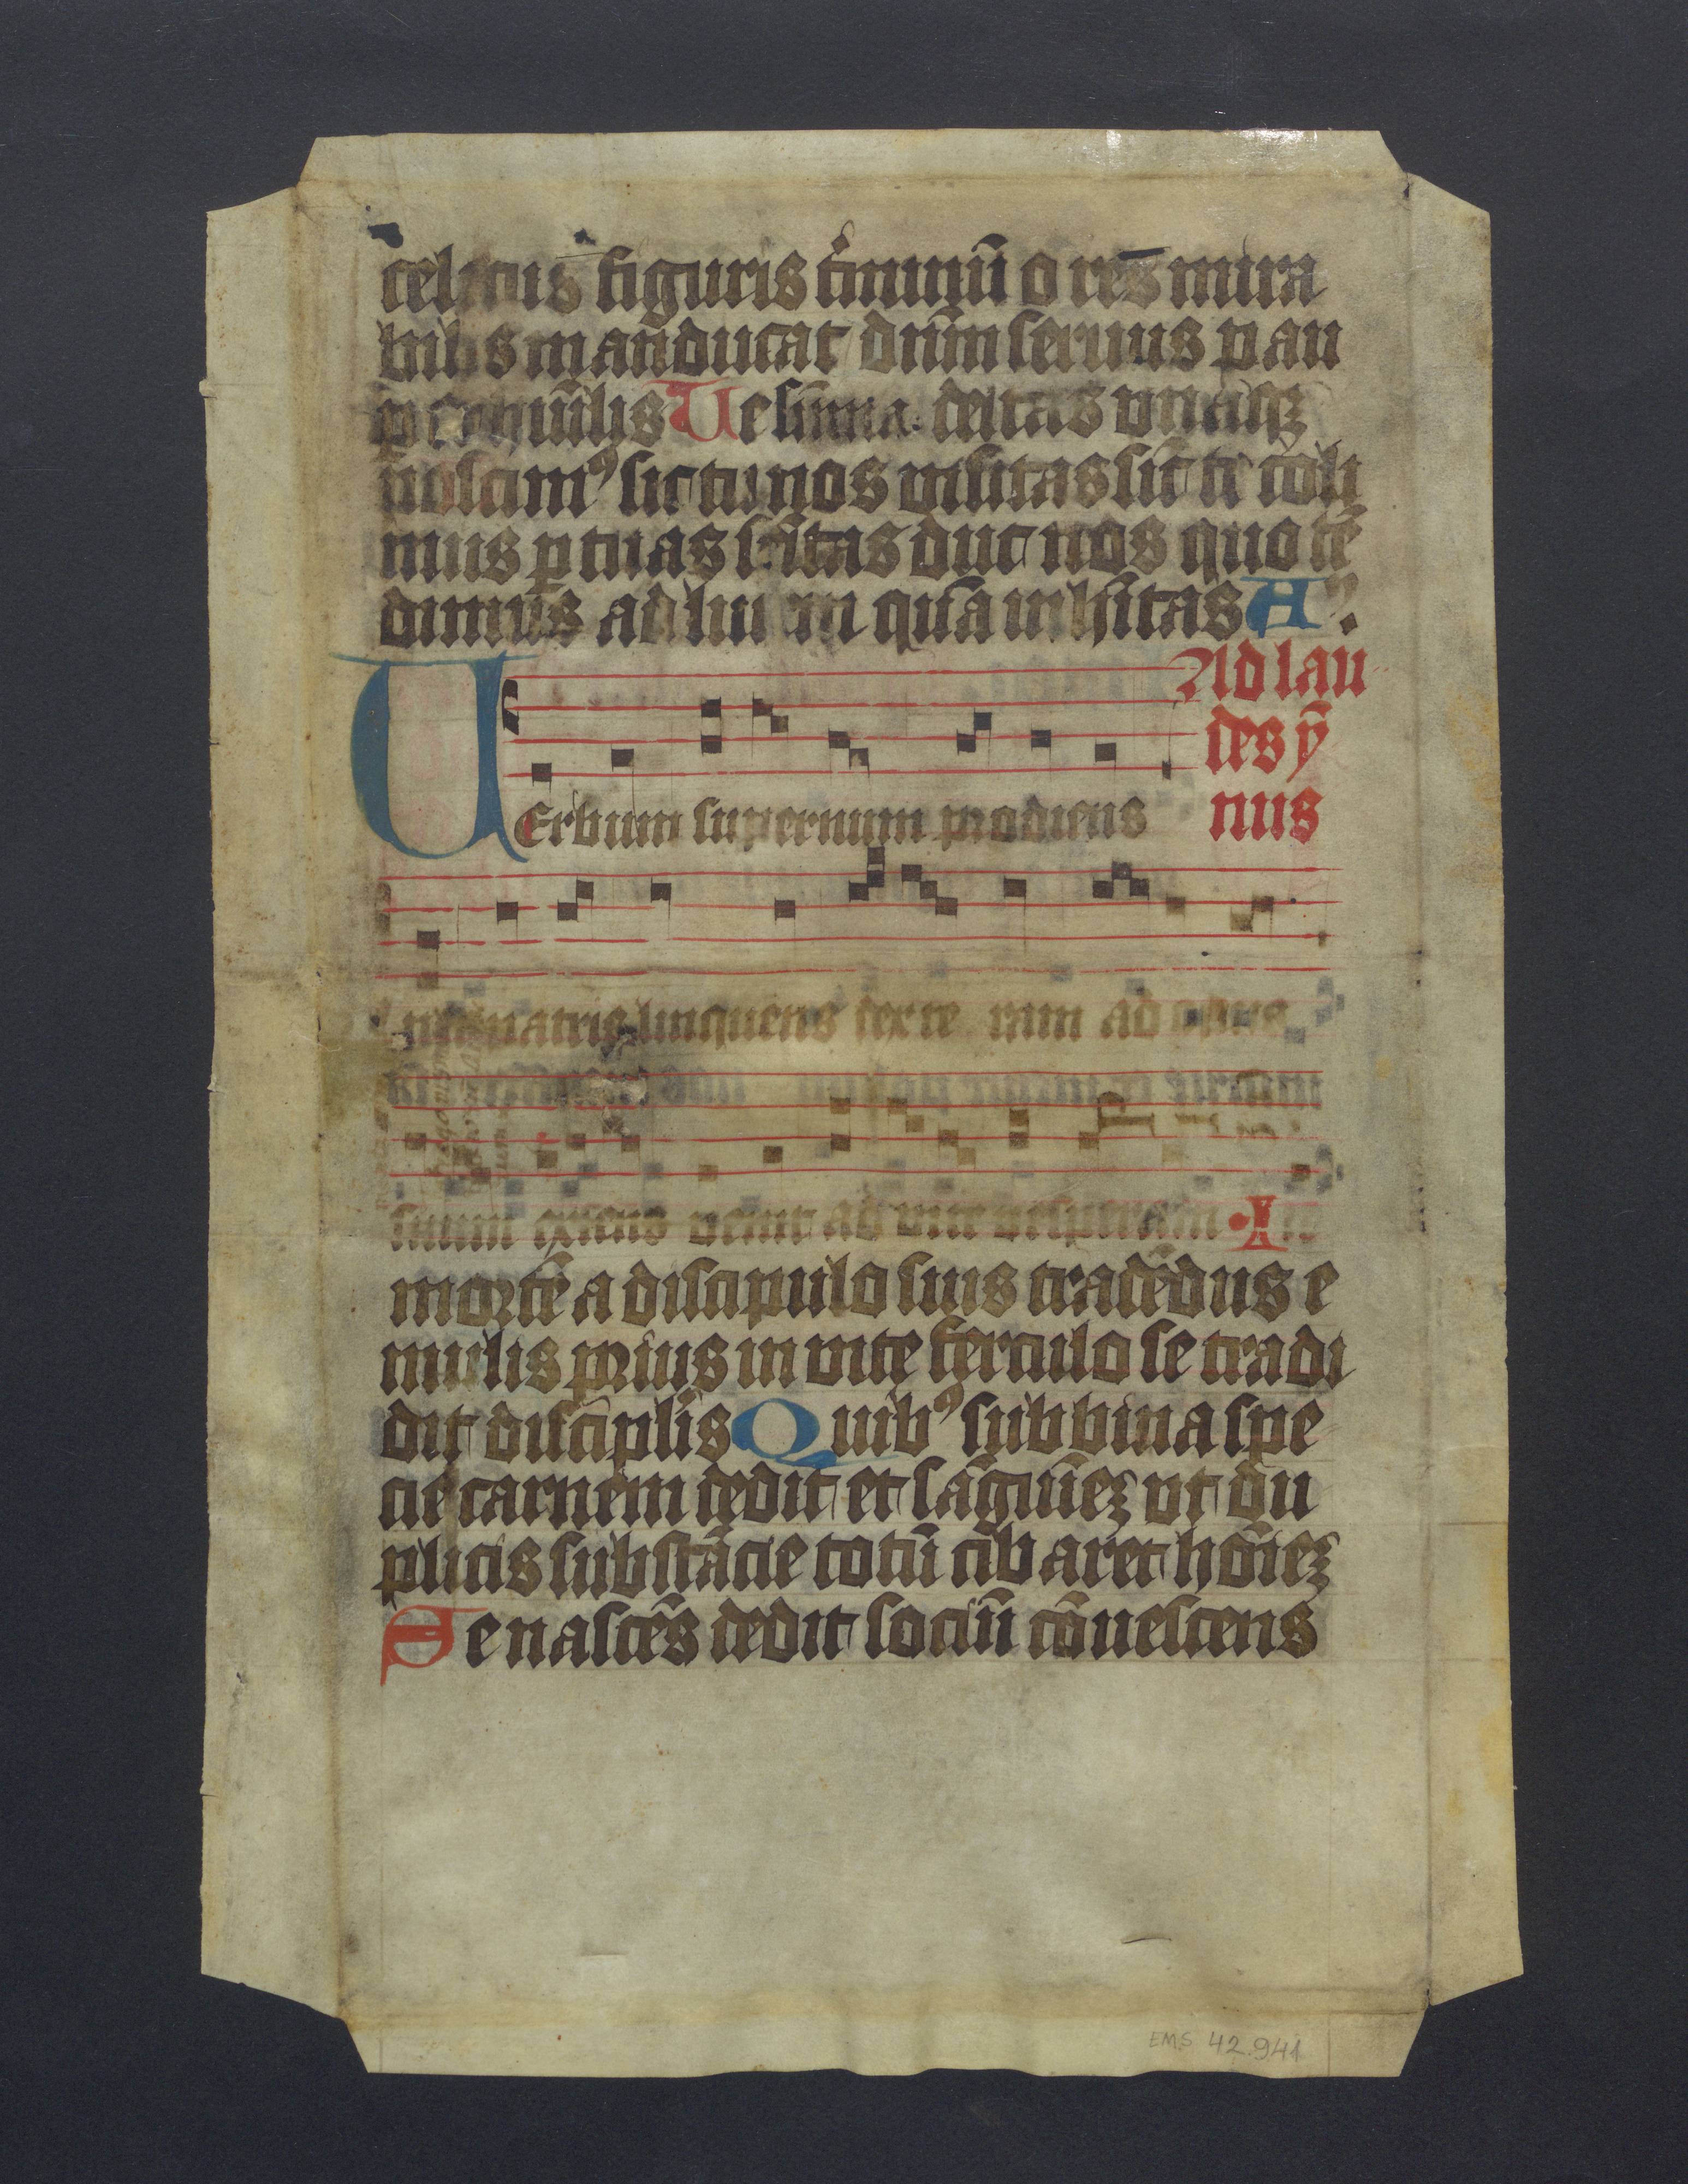 celicus figuris t̉minũ o res mira
bilis manducat dñm seruus pau
p et hũilis Te sũma deitas vnaqȝ
poscimꝰ sic tu nos visitas sic̃ te coli
mus ꝑ tuas sẽitas duc nos quo tẽ
dimus ad lucem quã inhĩtas A?
Ad lau
des ẏ
nus
VErbum supernum prodiens
nec patris linquens dexte ram ad opus
suum exiens venit ad vite vesperam In
mortẽ a discipulo suis tradẽdus e
mulis prius in vite ferculo se tradi
dit disciplis Quibꝰ sub bina spe
cie carnem dedit et sãguĩeȝ vt du
plicis substãcie totũ cibaret hoĩeȝ
Se nascẽs dedit sociũ cõuescens
EMS 42.941